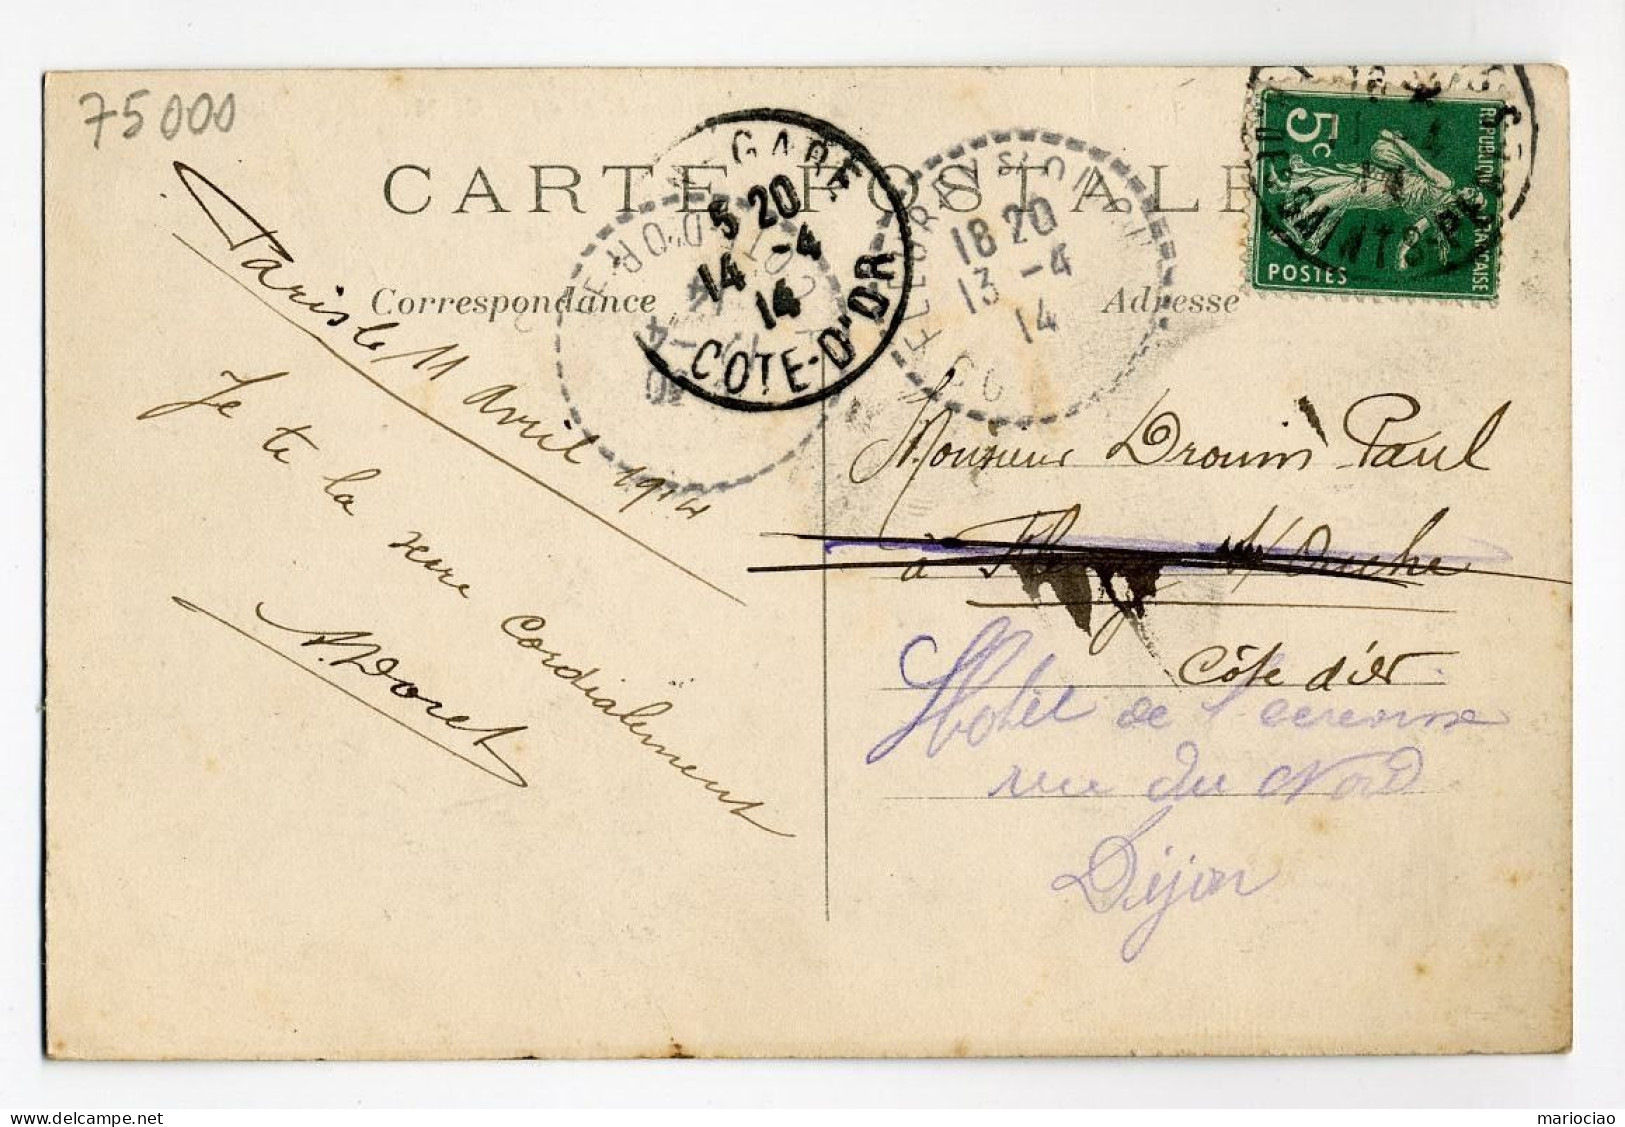 75000
CARTE POSTALE
Correspondance
Adresse
Paris le 11 Avril 1914
Je te la serre cordialement
A. Doret
Monsieur Drouin Paul
à Fleurey s/ Ouche
Côte d'or
Hotel de
rue du Nord
Dijon
GARE
5 20
14 -4
14
COTE-D'OR
FLEUREY-SUR-OUCHE
18 20
13 -4
14
5c
REPUBLIQUE FRANÇAISE
POSTES
mariociao